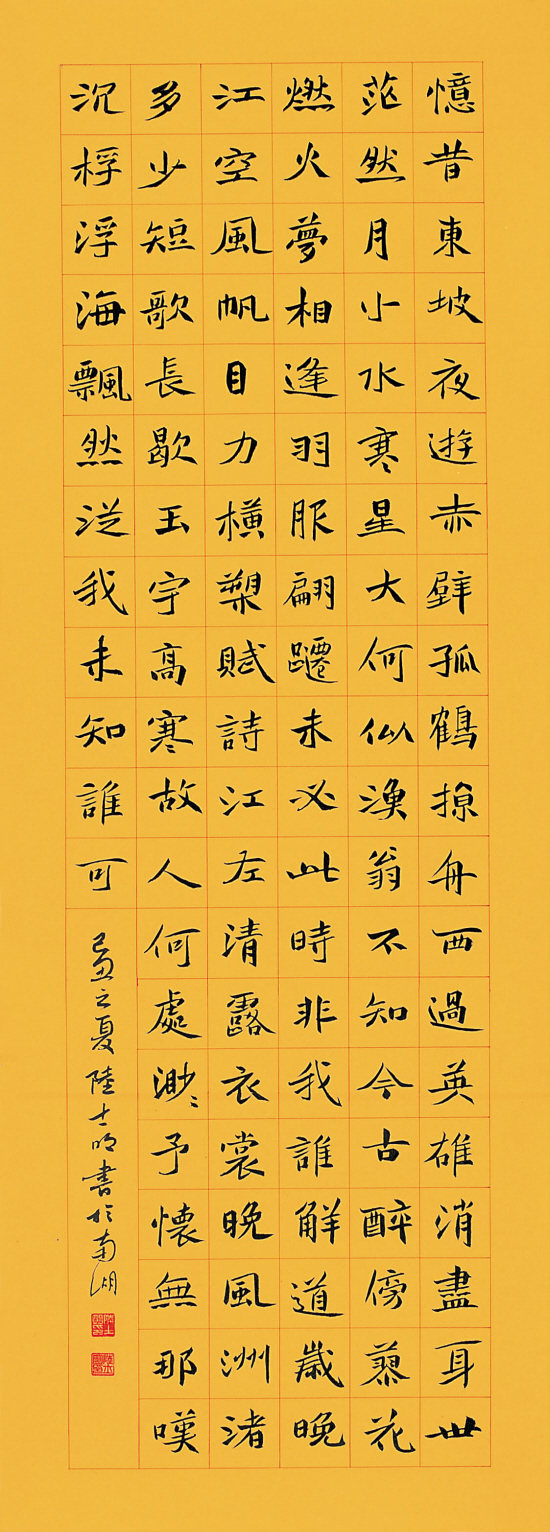 憶昔東坡夜遊赤壁孤鶴掠舟西過英雄消盡耳世
茫然月小水寒星大何似漁翁不知今古醉傍蓼花
燃火夢相逢羽服翩躚未必此時非我誰解道歲晚
江空風帆目力橫槊賦詩江左清露衣裳晚風洲渚
多少短歌長歇玉宇高寒故人何處渺〻予懷無那嘆
沉桴浮海飄然從我未知誰可
己丑之夏陸士明書於南湖